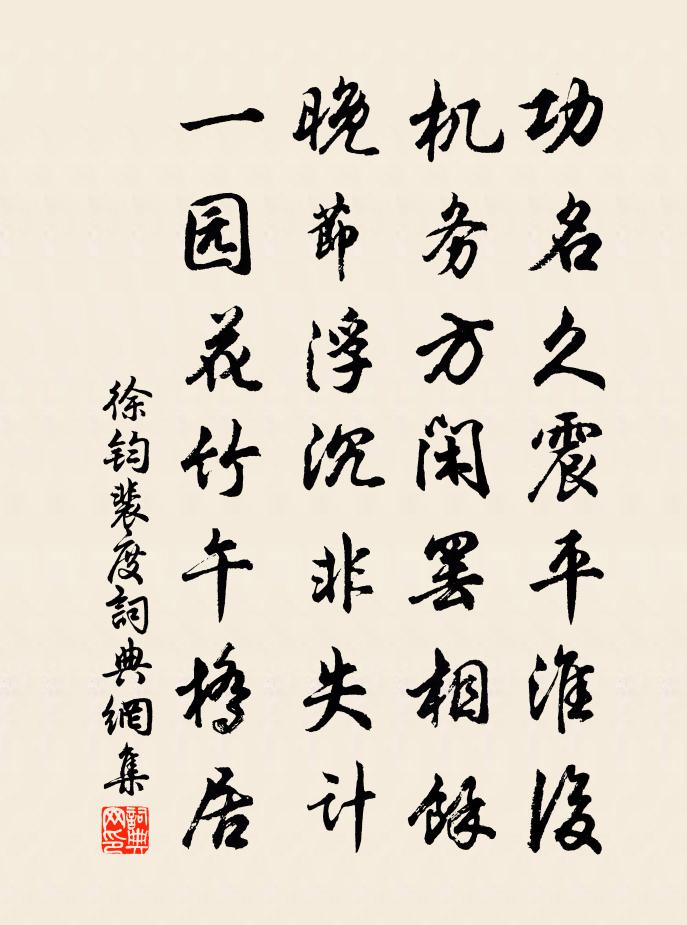 功名久震平淮後
机务方闲罢相餘
晚節浮沉非失计
一园花竹午橋居
徐钧裴度詞典網集
詞典网印